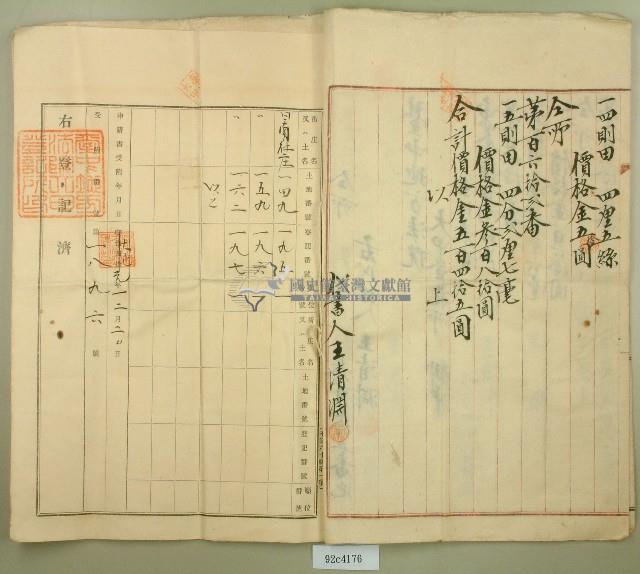 一四則田 四厘五絲
價格金五圓
仝所
第百六拾弍番
一五則田 四分弍厘七毫
價格金叁百八拾圓
合計價格金五百四拾五圓
以上
代書人王清淵
街庄名
又ハ土名
土地番號
登記番號
街庄名
又ハ土名
土地番號
登記番號
順位
番號
一四九
一九五
〃
一五九
一九六
〃
一六二
一九七
以上
申請書受附年月日
元年
一二月二
日
受附番號
第
一八九六
號
右登記濟
國史館臺灣文獻館
TAIWAN HISTORICA
92c4176